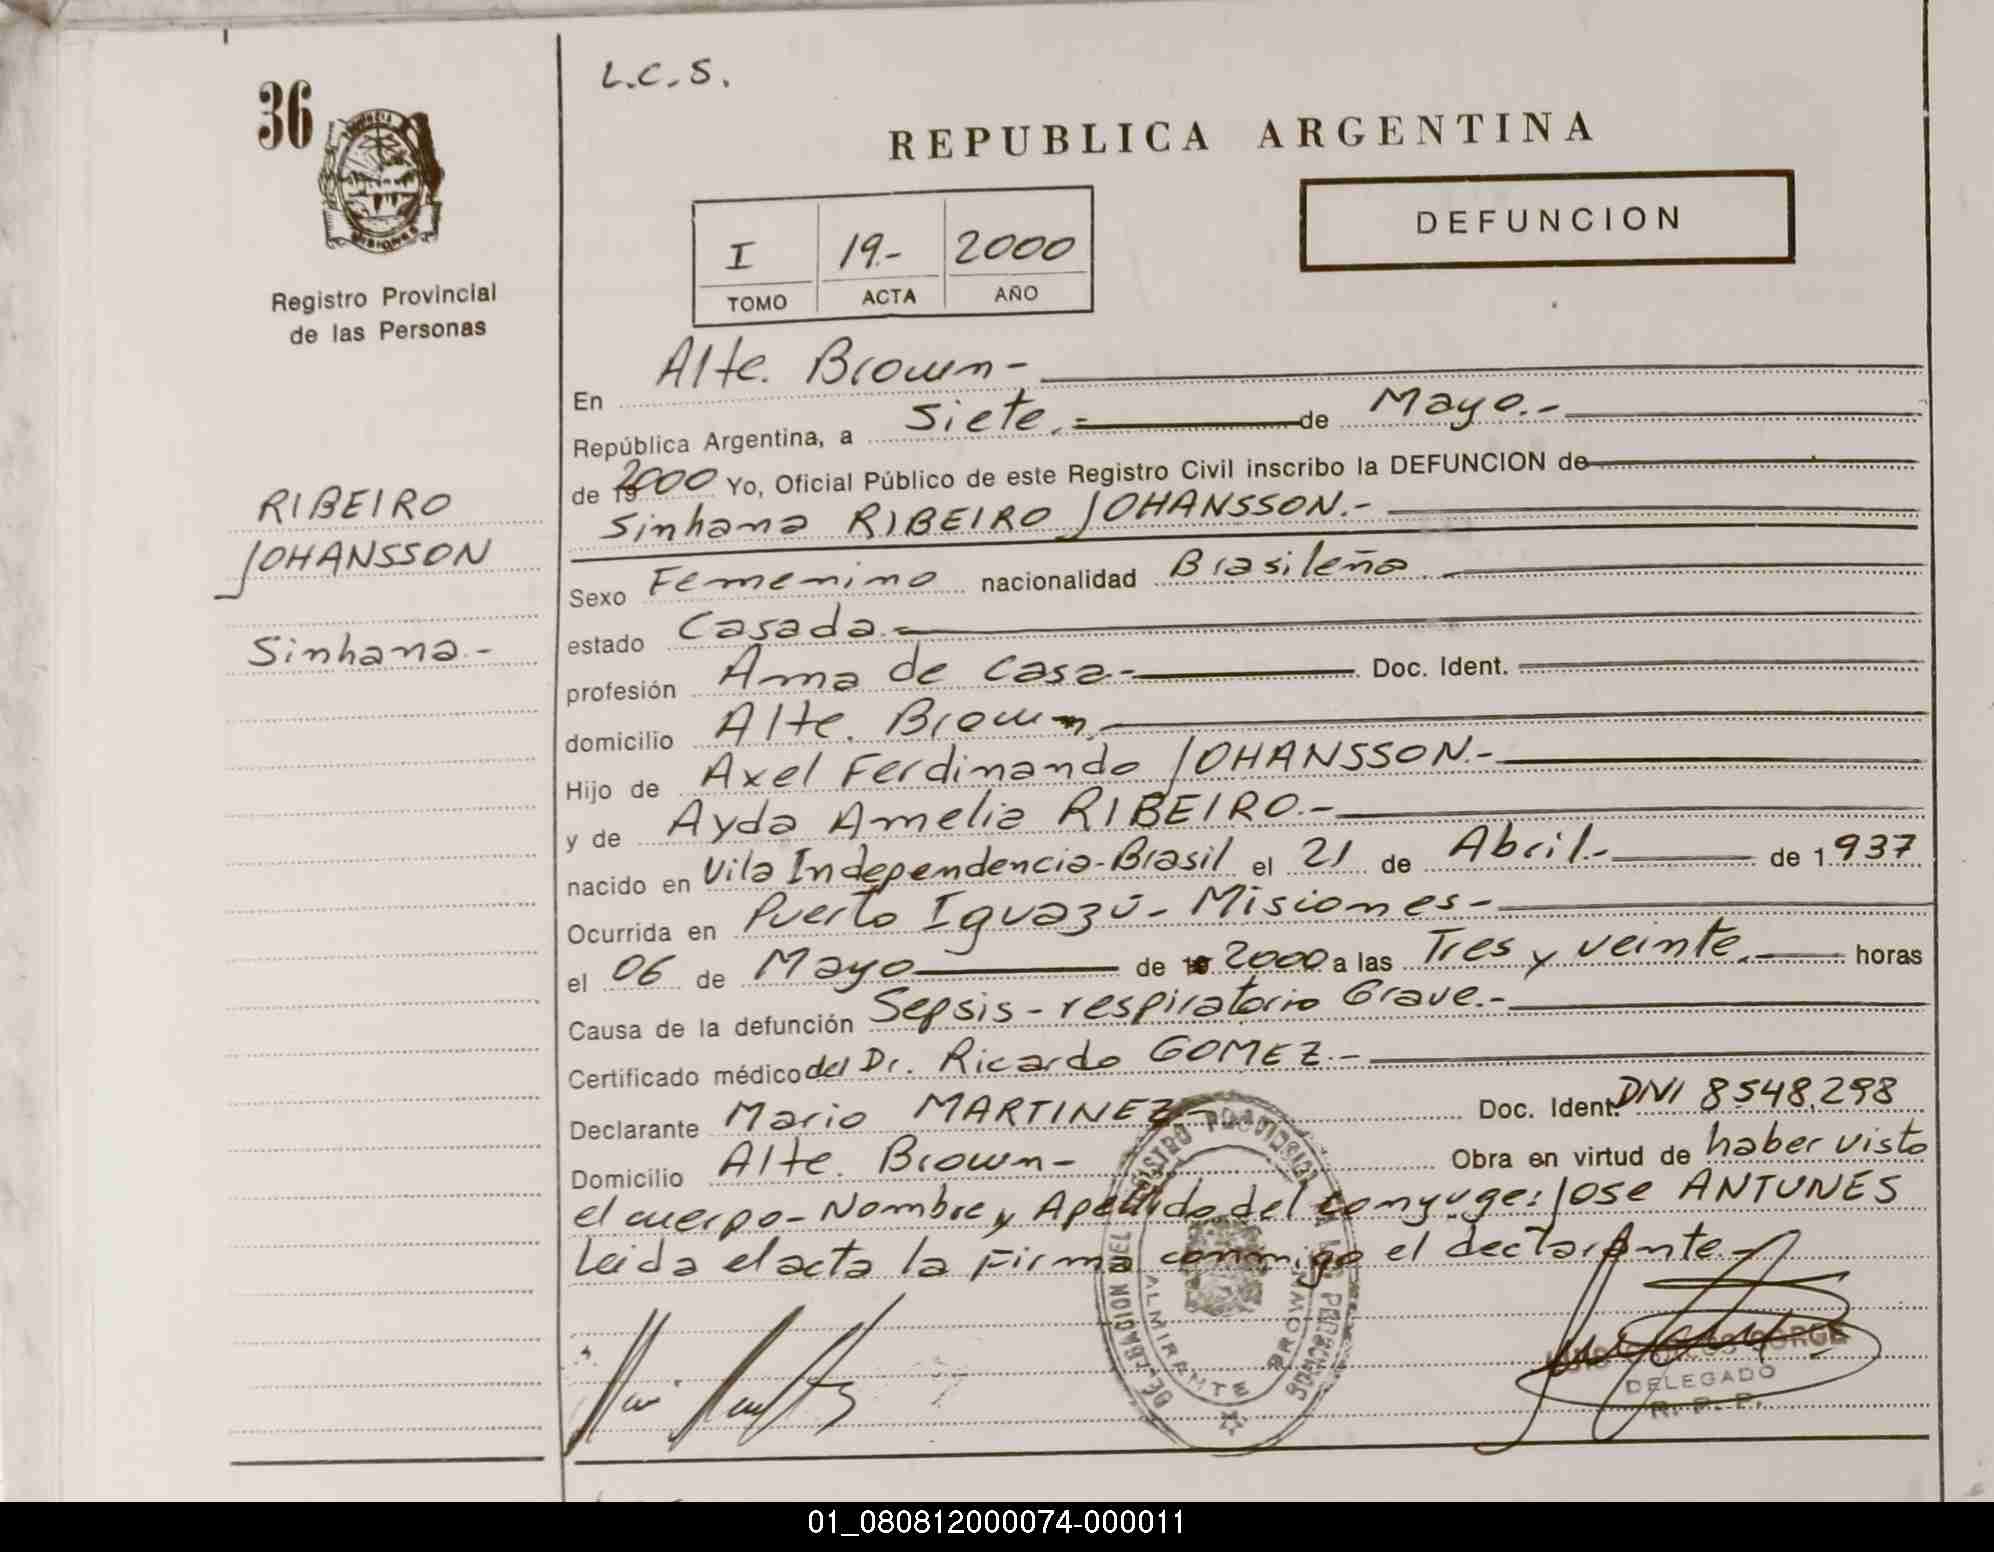 36
L.C.S.
REPUBLICA ARGENTINA
PROVINCIA
MISIONES
Registro Provincial
de las Personas
DEFUNCION
I 19.- 2000
TOMO ACTA AÑO
En Alte. Brown-
República Argentina, a Siete.- de Mayo.-
de 19 2000 Yo, Oficial Público de este Registro Civil inscribo la DEFUNCION de
Sinhana RIBEIRO JOHANSSON.-
RIBEIRO
JOHANSSON
Sinhana.-
Sexo Femenino nacionalidad Brasileña.
estado Casada.-
profesión Ama de Casa.- Doc. Ident.
domicilio Alte. Brown.
Hijo de Axel Ferdinando JOHANSSON.-
y de Ayda Amelia RIBEIRO.-
nacido en Vila Independencia-Brasil el 21 de Abril.- de 1937
Ocurrida en Puerto Iguazú- Misiones-
el 06 de Mayo de 2000 a las Tres y veinte. horas
Causa de la defunción Sepsis-respiratorio Grave.-
Certificado médico del Dr. Ricardo GOMEZ.-
Declarante Mario MARTINEZ- Doc. Ident. DNI 8.548.298
Domicilio Alte. Brown- Obra en virtud de haber visto
el cuerpo- Nombre y Apellido del conyuge: Jose ANTUNES
Leida el acta la Firma conmigo el declarante.-
DELEGACION DEL REGISTRO PROVINCIAL DE LAS PERSONAS
ALMIRANTE BROWN
JORGE
DELEGADO
R. P. P.
01_080812000074-000011